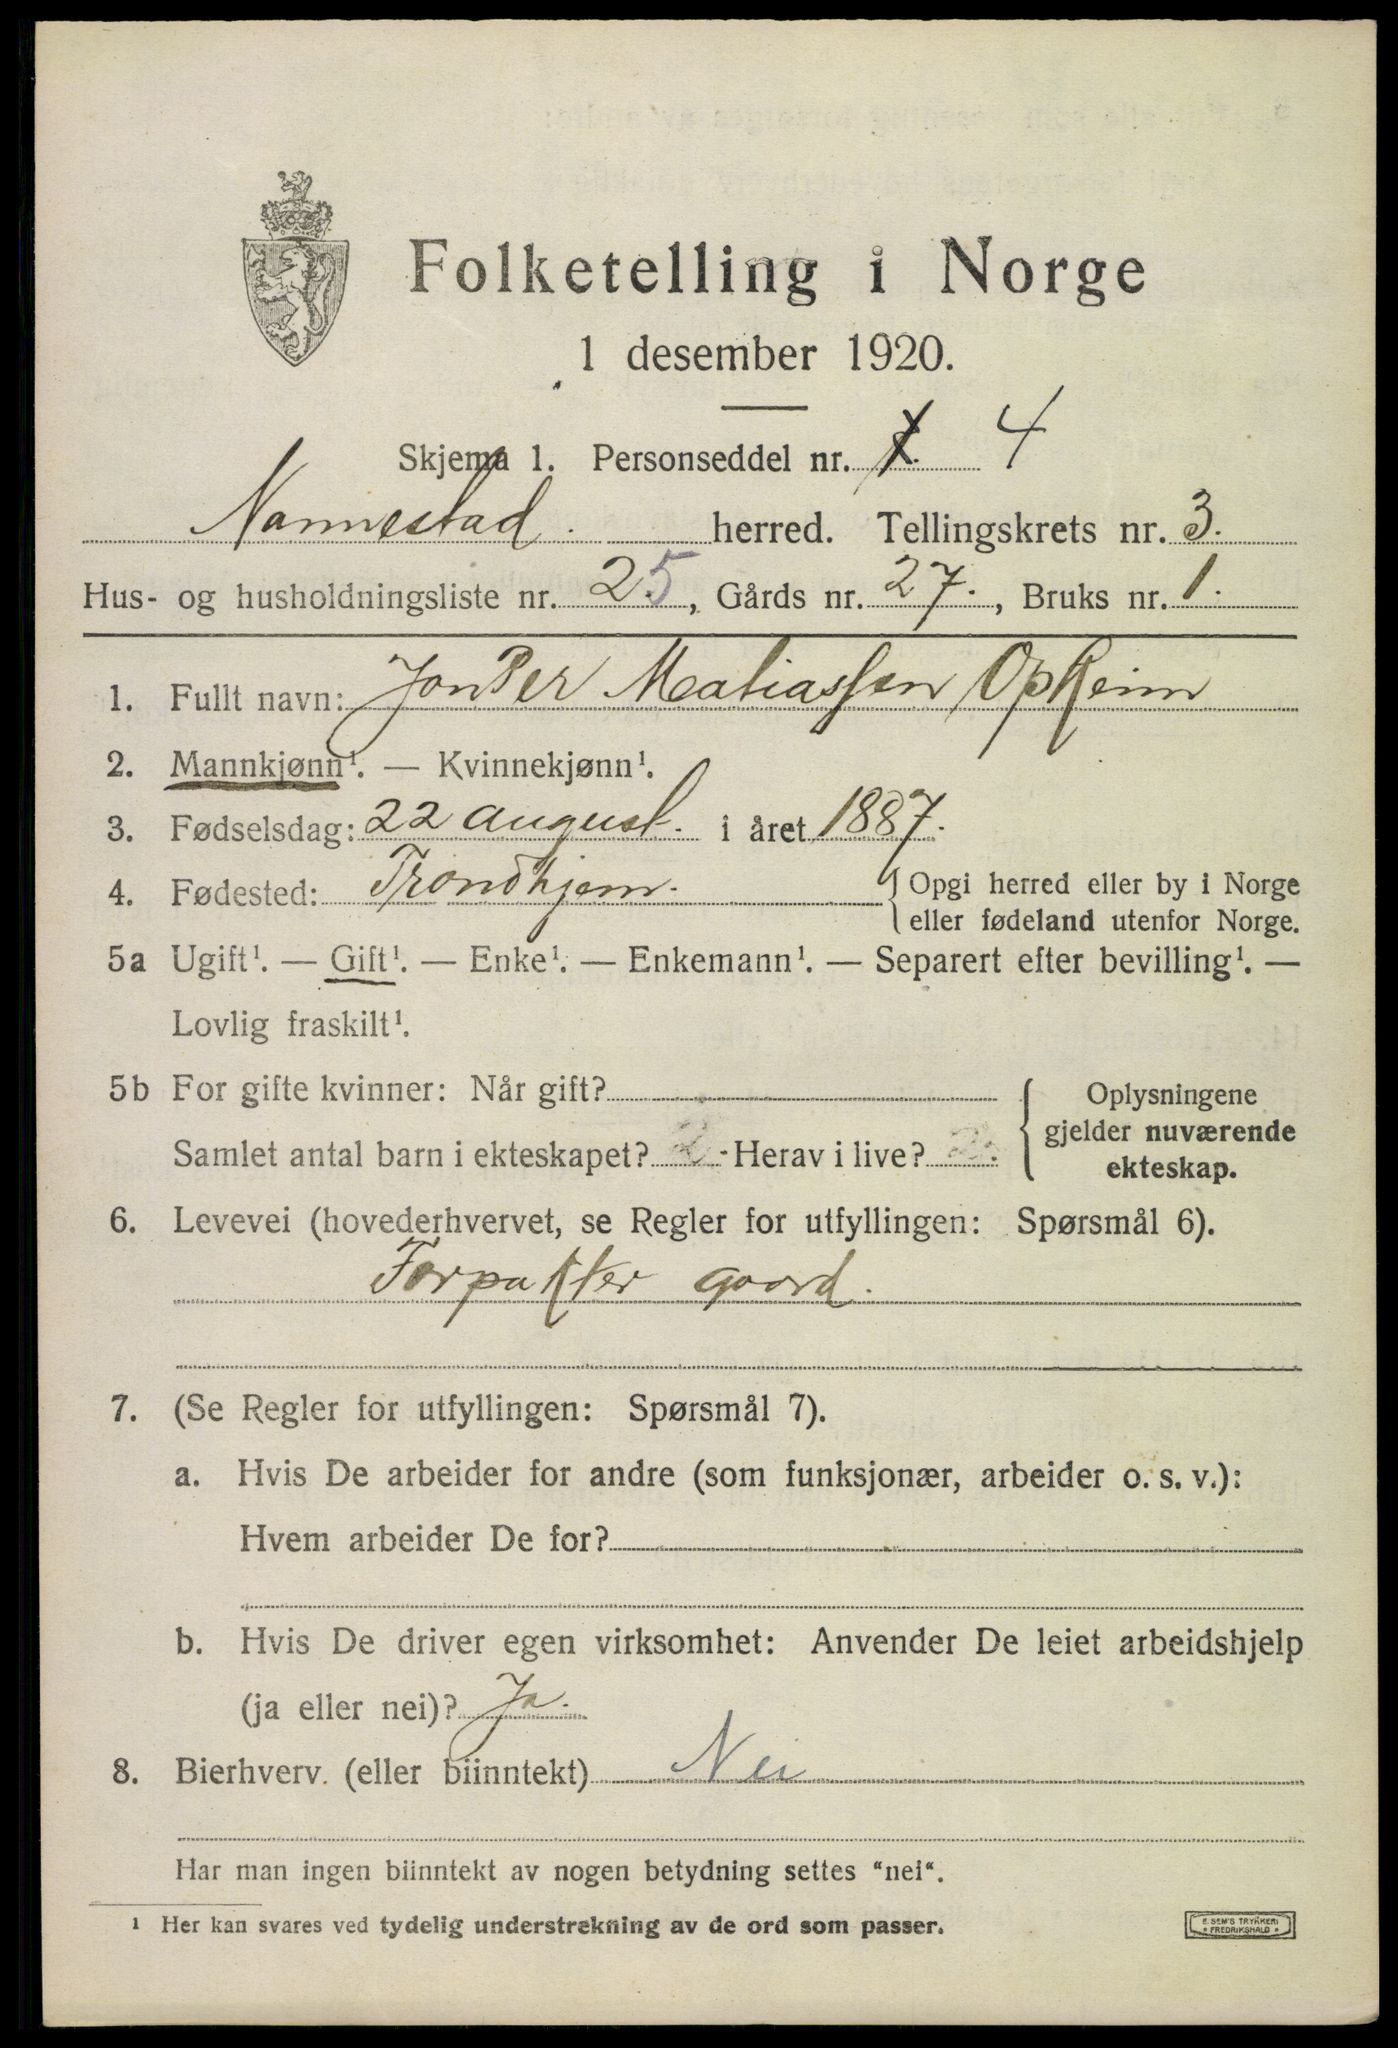 Folketelling i Norge
1 desember 1920.
Skjema 1. Personseddel nr. 4
Nannestad. herred. Tellingskrets nr. 3.
Hus- og husholdningsliste nr. 25, Gårds nr. 27., Bruks nr. 1.
1. Fullt navn: Jon Per Matiassen Opheim
2. Mannkjønn¹. — Kvinnekjønn¹.
3. Fødselsdag: 22 august. i året 1887.
4. Fødested: Trondhjem. { Opgi herred eller by i Norge
eller fødeland utenfor Norge.
5a Ugift¹. — Gift¹. — Enke¹. — Enkemann¹. — Separert efter bevilling¹. —
Lovlig fraskilt¹.
5b For gifte kvinner: Når gift? { Oplysningene
gjelder nuværende
Samlet antal barn i ekteskapet? 2 Herav i live? 2.
ekteskap.
6. Levevei (hovederhvervet, se Regler for utfyllingen: Spørsmål 6).
Forpakter gaard.
7. (Se Regler for utfyllingen: Spørsmål 7).
a. Hvis De arbeider for andre (som funksjonær, arbeider o. s. v.):
Hvem arbeider De for?
b. Hvis De driver egen virksomhet: Anvender De leiet arbeidshjelp
(ja eller nei)? Ja.
8. Bierhverv. (eller biinntekt) Nei
Har man ingen biinntekt av nogen betydning settes “nei“.
¹ Her kan svares ved tydelig understrekning av de ord som passer.
E. SEM'S TRYKKERI
* FREDRIKSHALD *